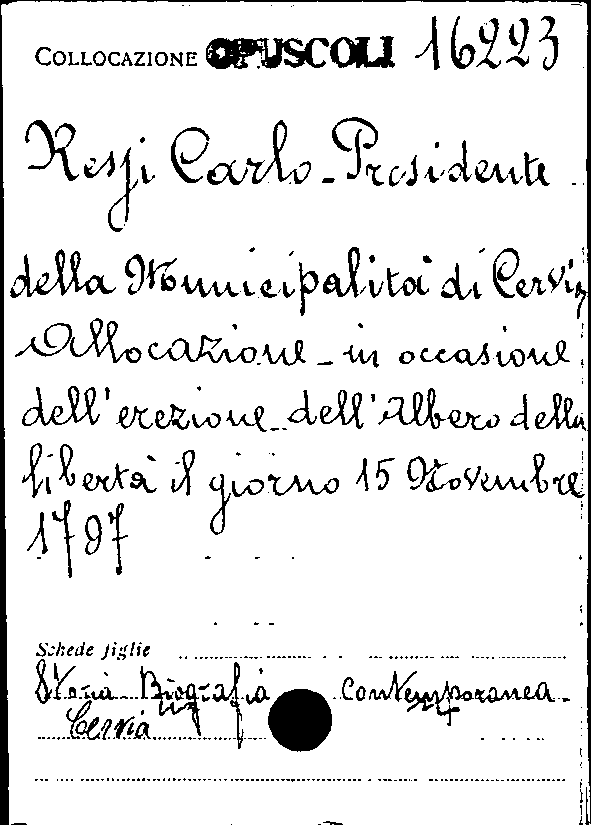 COLLOCAZIONE OPUSCOLI 16223
Resji Carlo - Presidente
della Municipalità di Cervia
Allocazione - in occasione
dell'erezione dell'Albero della
libertà il giorno 15 Novembre
1797
Schede figlie
Storia Biografia contemporanea -
Cervia